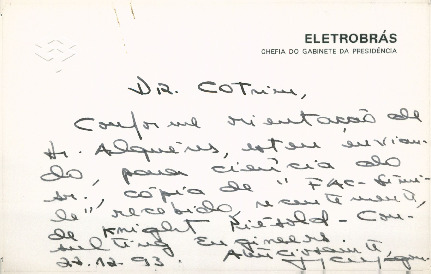 ELETROBRÁS
CHEFIA DO GABINETE DA PRESIDÊNCIA
DR. COTRIM,
Conforme orientação de
Dr. Alquéres, estou envian-
do, para ciência do
sr., cópia de "FAC-Simi-
le" recebido, recentemente,
de Knight Piesold - Con-
sulting Engineers.
22.12.93.